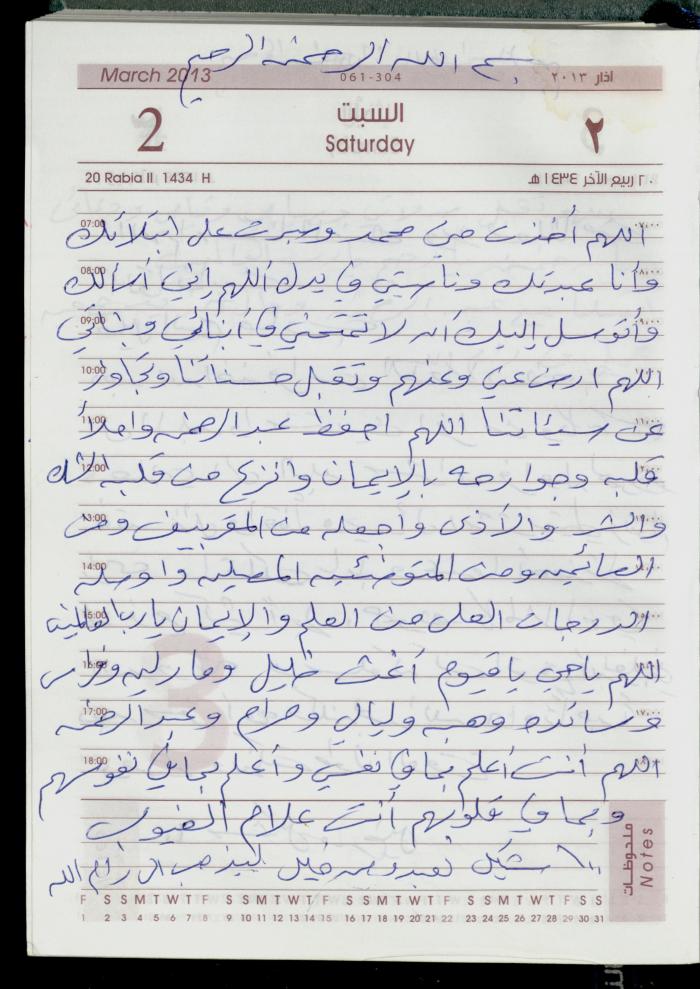 بسم الله الرحمن الرحيم
March 2013 061-304 آذار ٢٠١٣
2 السبت ٢
Saturday
20 Rabia II 1434 H ٢٠ ربيع الآخر ١٤٣٤ هـ
07:00 اللهم أخذت مني محمد وصبرت على ابتلائك
08:00 وأنا عبدتك وناصيتي في يدك اللهم إني أسألك
09:00 وأتوسل إليك أن لا تمتحني في أبنائي وبناتي
10:00 اللهم ارض عني وعنهم وتقبل حسناتنا وتجاوز
11:00 عن سيئاتنا اللهم احفظ عبد الرحمن واملأ
12:00 قلبه وجوارحه بالإيمان وانزع من قلبه الشك
13:00 والشر والأذى واجعله من المقربين ومن
14:00 الصائمين ومن المتوضئين المصلين
15:00 الدرجات العلى من العلم والإيمان يا رب العالمين
16:00 اللهم يا حي يا قيوم أغث خليل ومارلين وفراس
17:00 وسائده وهبه وليالي ومرام وعبد الرحمن
18:00 اللهم أنت أعلم بما في نفسي وأعلم بما في نفوسهم
وبما في قلوبهم أنت علام الغيوب
١٠٠ شيكل ليذهب الى رام الله
ملحوظات Notes
F S S M T W T F S S M T W T F S S M T W T F S S M T W T F S S
1 2 3 4 5 6 7 8 9 10 11 12 13 14 15 16 17 18 19 20 21 22 23 24 25 26 27 28 29 30 31